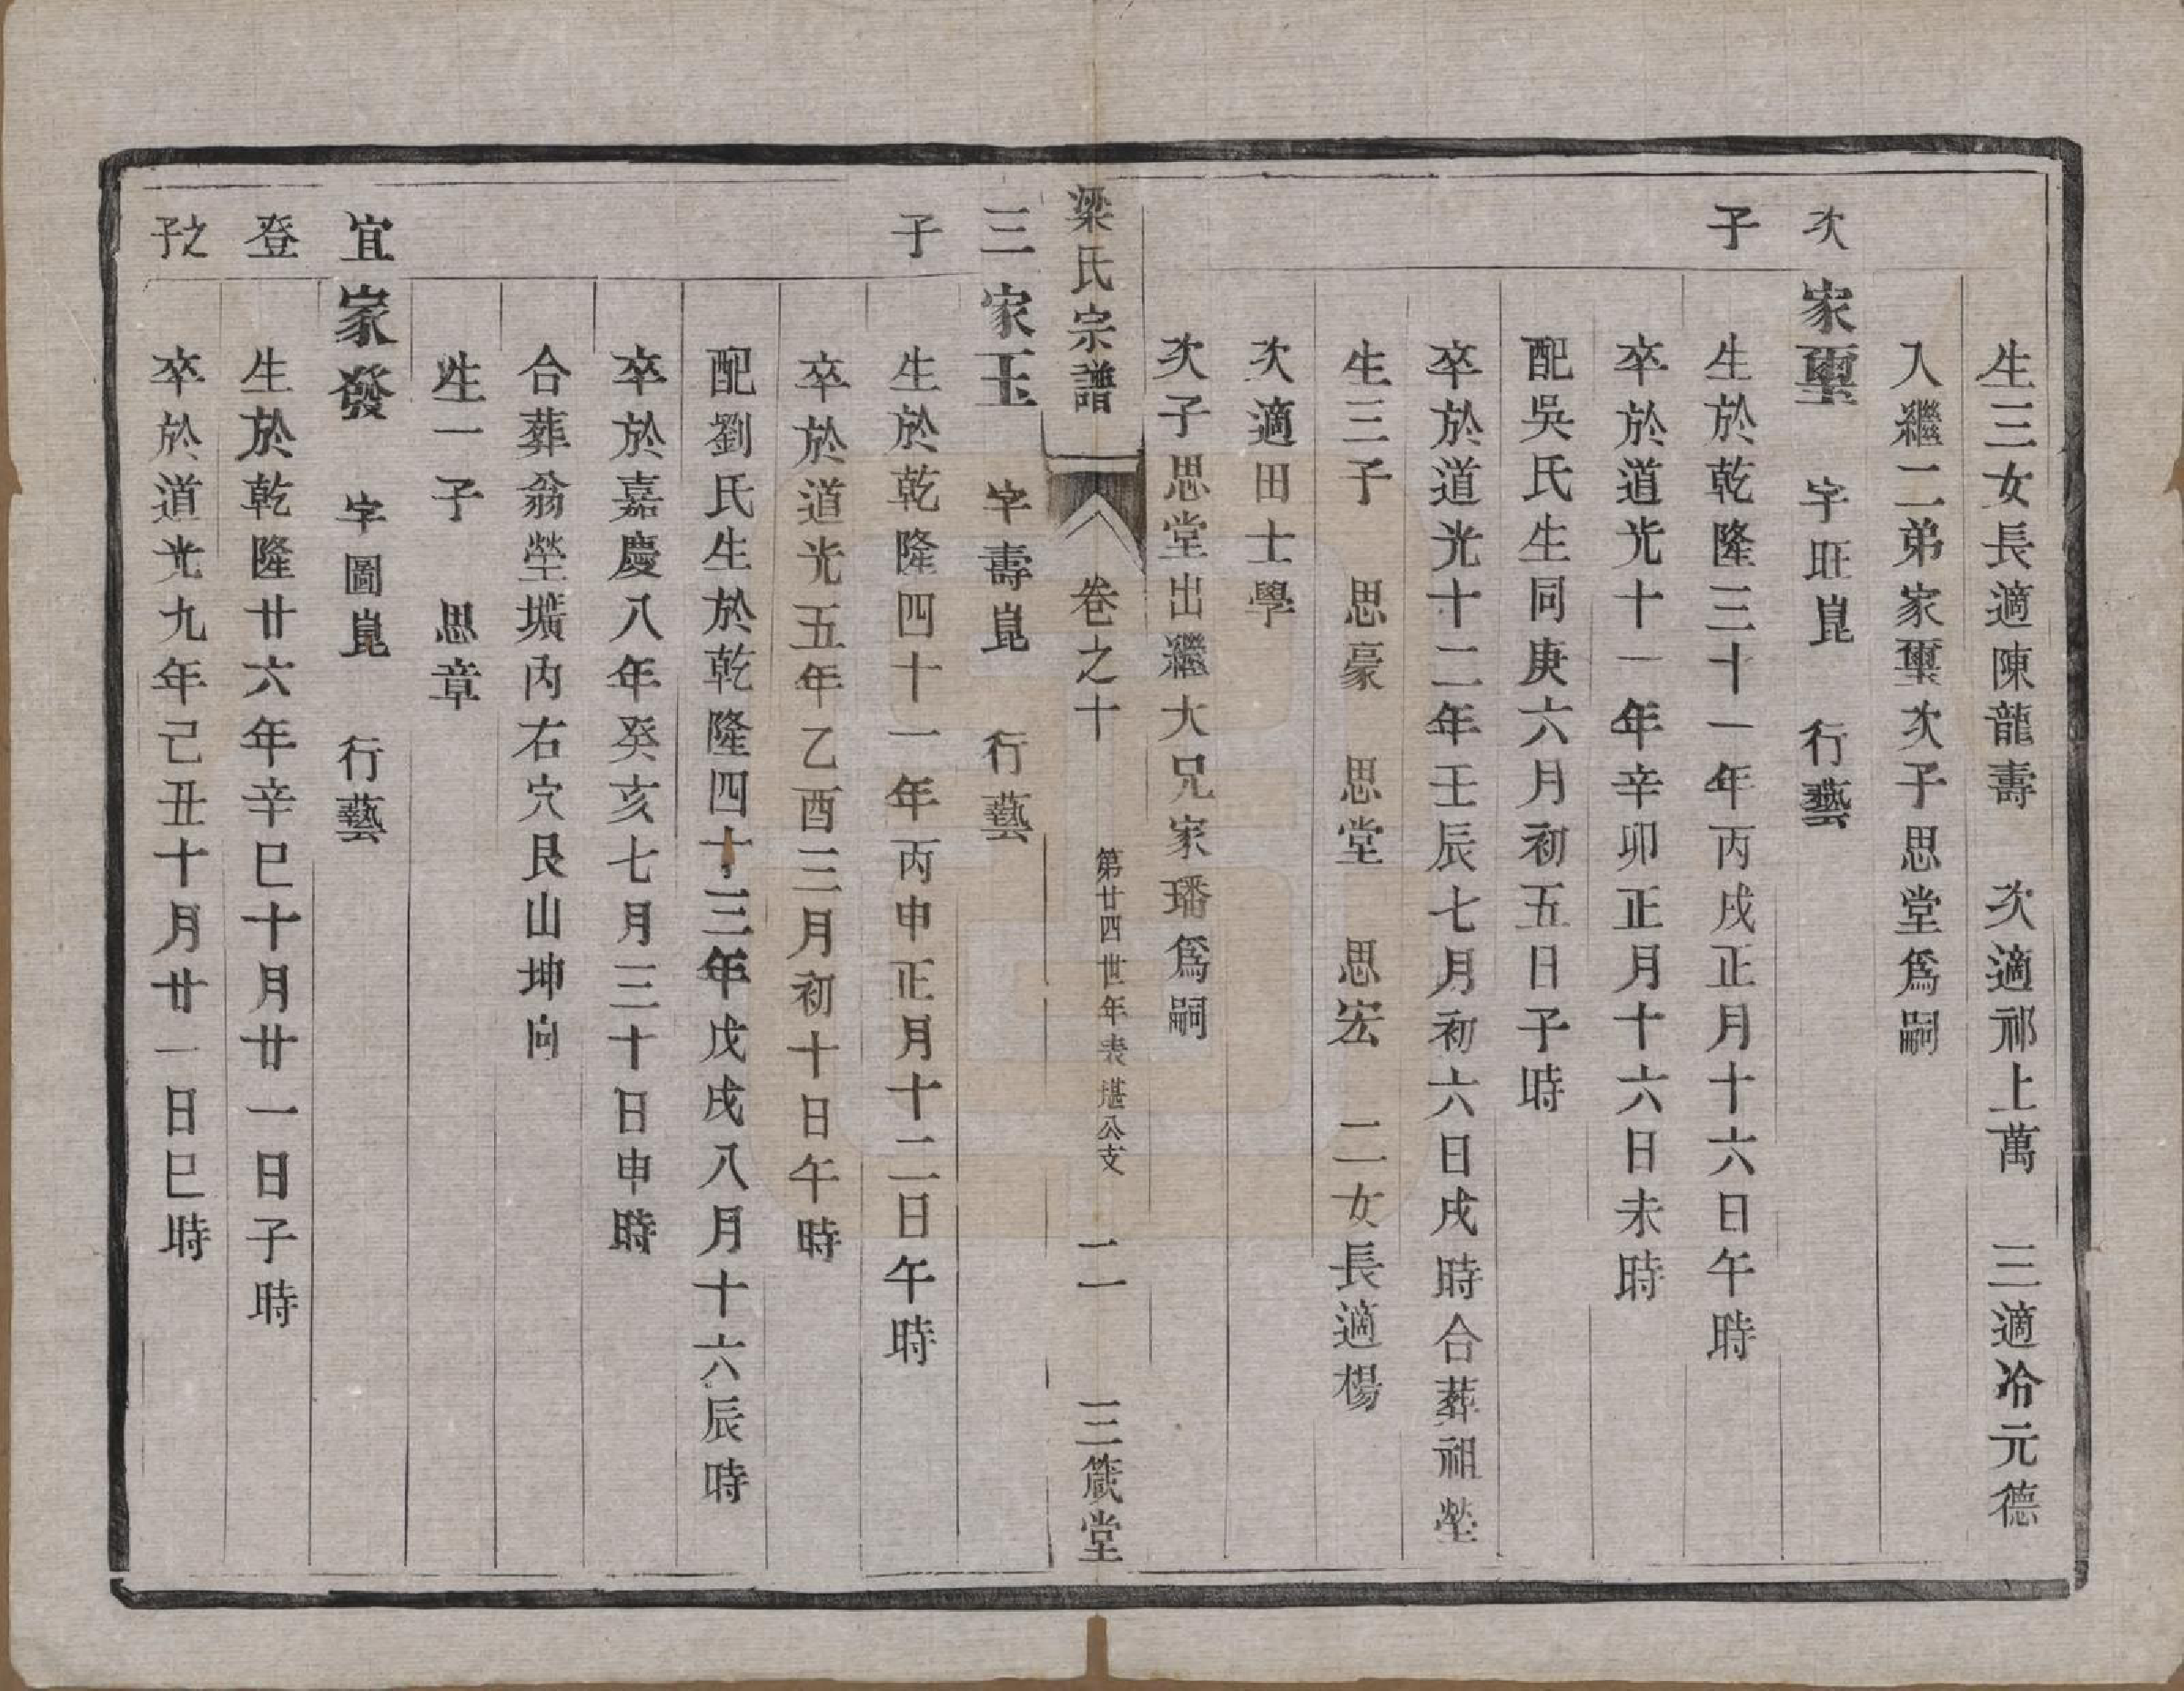 生三女長適陳龍壽　次適祁上萬　三適冷元德
入繼二弟家璽次子思堂爲嗣
次　家璽　字旺崑　行藝
子　生於乾隆三十一年丙戌正月十六日午時
卒於道光十一年辛卯正月十六日未時
配吳氏生同庚六月初五日子時
卒於道光十二年壬辰七月初六日戌時合葬祖塋
生三子　思豪　思堂　思宏　二女長適楊
次適田士學
次子思堂出繼大兄家璠爲嗣
梁氏宗譜　卷之十　第廿四世年表堪公支　二　三箴堂
三　家玉　字壽崑　行藝
子　生於乾隆四十一年丙申正月十二日午時
卒於道光五年乙酉三月初十日午時
配劉氏生於乾隆四十三年戊戌八月十六辰時
卒於嘉慶八年癸亥七月三十日申時
合葬翁塋壙內右穴艮山坤向
生一子　思章
宜　家發　字圖崑　行藝
登　生於乾隆廿六年辛巳十月廿一日子時
之子　卒於道光九年己丑十月廿一日巳時